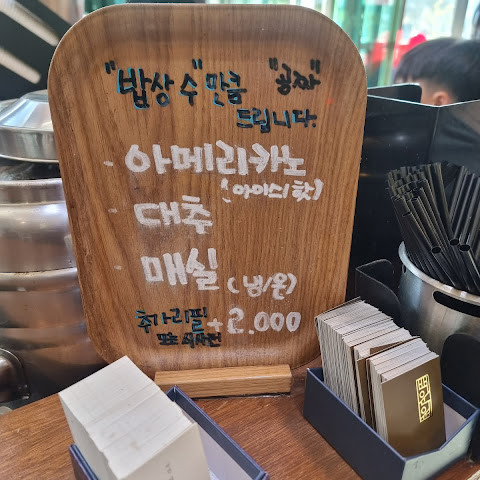 "밥상 수" 만큼 "공짜"
드립니다.
· 아메리카노
(아이스/핫)
· 대추
· 매실 (냉/온)
추가 리필 + 2.000